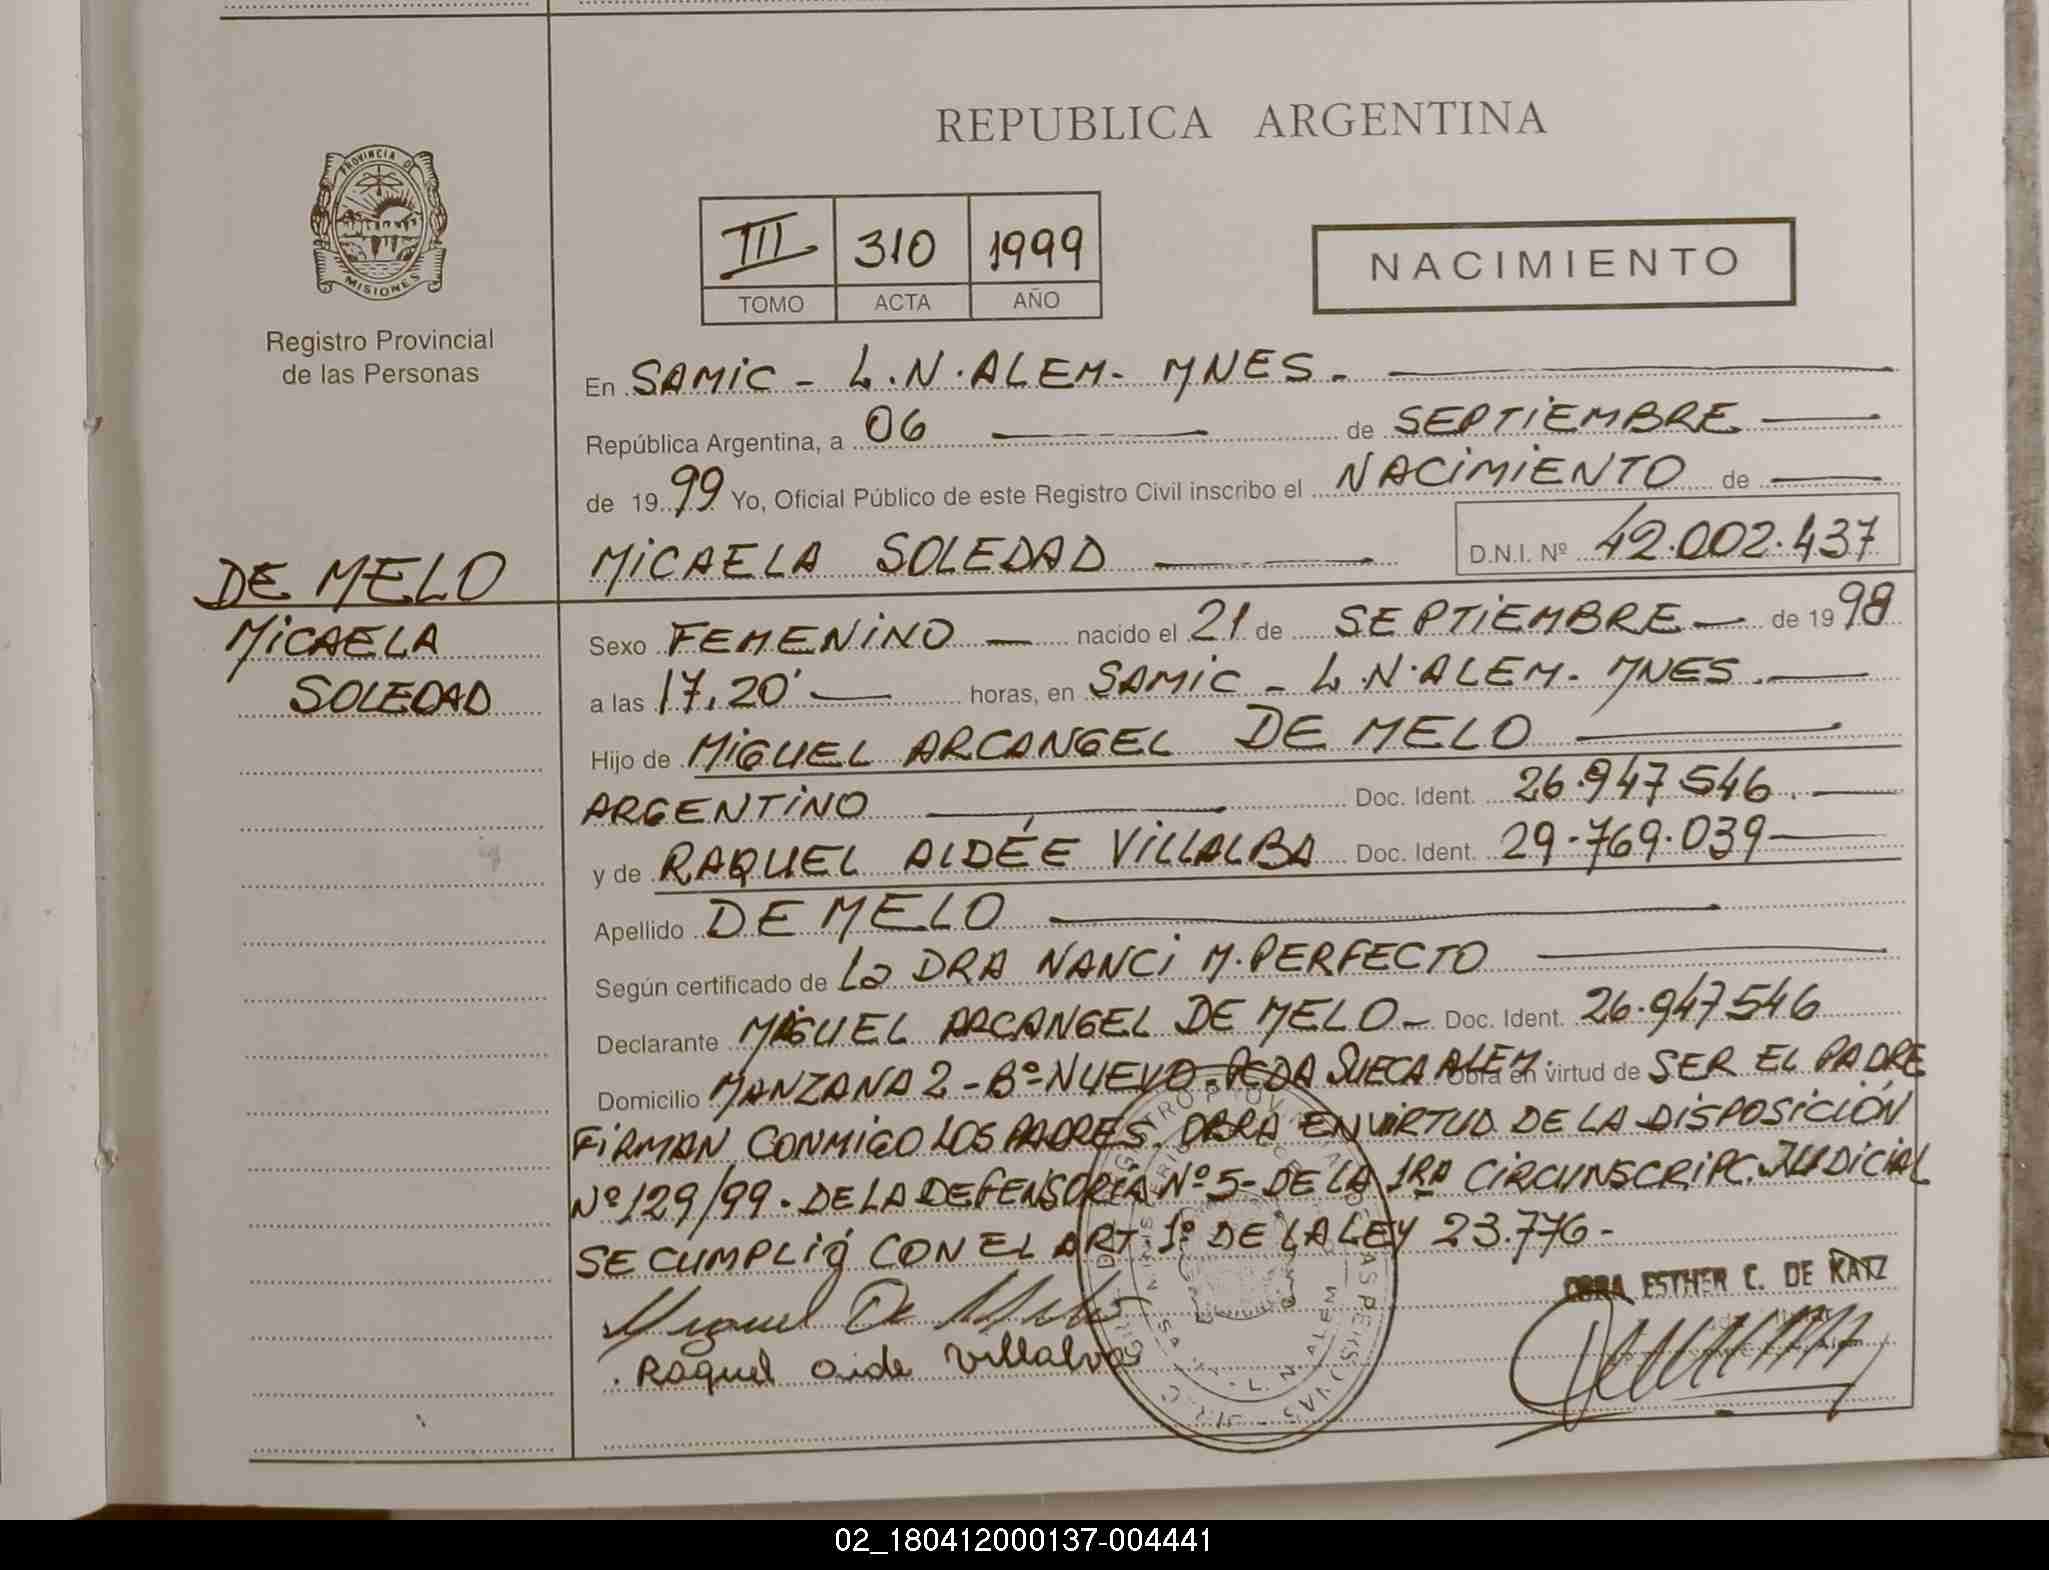 REPUBLICA ARGENTINA
PROVINCIA DE
MISIONES
Registro Provincial
de las Personas
III 310 1999
TOMO ACTA AÑO
NACIMIENTO
En SAMIC - L.N. ALEM - MNES.-
República Argentina, a 06 de SEPTIEMBRE
de 1999 Yo, Oficial Público de este Registro Civil inscribo el NACIMIENTO de
MICAELA SOLEDAD D.N.I. Nº 42.002.437
DE MELO
MICAELA
SOLEDAD
Sexo FEMENINO nacido el 21 de SEPTIEMBRE de 1998
a las 17,20' horas, en SAMIC - L.N. ALEM - MNES.
Hijo de MIGUEL ARCANGEL DE MELO
ARGENTINO Doc. Ident. 26.947.546.
y de RAQUEL AIDÉE VILLALBA Doc. Ident. 29.769.039
Apellido DE MELO
Según certificado de La DRA NANCI M. PERFECTO
Declarante MIGUEL ARCANGEL DE MELO Doc. Ident. 26.947546
Domicilio MANZANA 2 - Bº NUEVO - PCDA SUECA ALEM. Obra en virtud de SER EL PADRE
FIRMAN CONMIGO LOS PADRES. OBRA EN VIRTUD DE LA DISPOSICIÓN
Nº 129/99. DE LA DEFENSORÍA Nº 5- DE LA 1RA CIRCUNSCRIPC. JUDICIAL
SE CUMPLIÓ CON EL ART. 1º DE LA LEY 23.776-
OBRA ESTHER C. DE KATZ
Miguel De Melo
Raquel aide Villalva
02_180412000137-004441